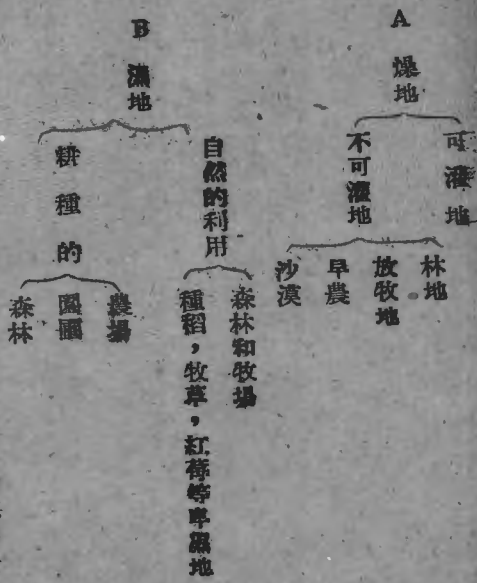 A 燥地
可灌地
不可灌地
林地
放牧地
旱農
沙漠
B 濕地
自然的利用
森林和牧場
種稻，牧草，紅莓等卑濕地
耕種的
農場
園圃
森林